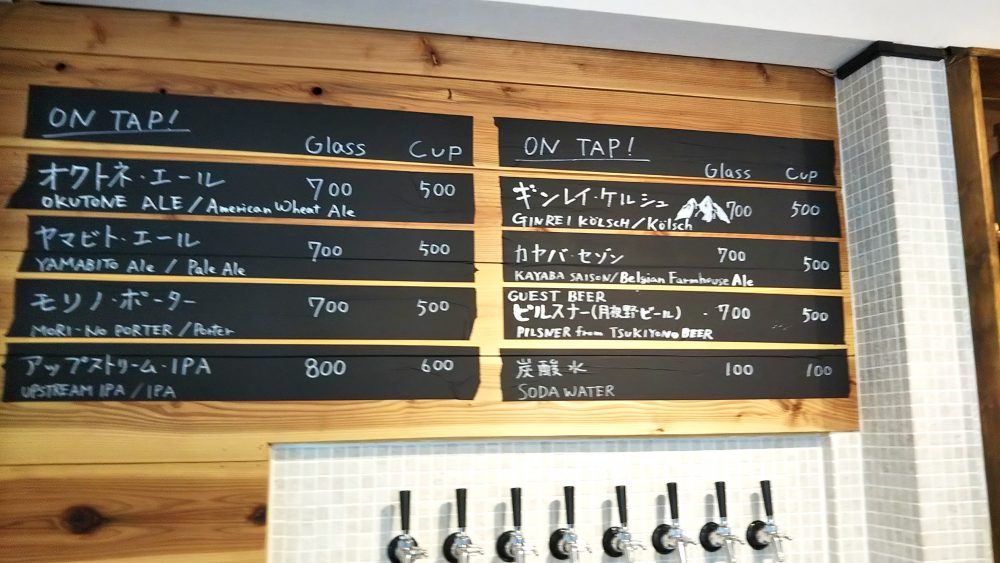 ON TAP!
Glass Cup
オクトネ・エール 700 500
OKUTONE ALE / American Wheat Ale
ヤマビト・エール 700 500
YAMABITO Ale / Pale Ale
モリノ・ポーター 700 500
MORI-NO PORTER / Porter
アップストリーム・IPA 800 600
UPSTREAM IPA / IPA
ON TAP!
Glass Cup
ギンレイ・ケルシュ 700 500
GINREI KÖLSCH / Kölsch
カヤバ・セゾン 700 500
KAYABA SAISON / Belgian Farmhouse Ale
GUEST BEER
ピルスナー(月夜野ビール) 700 500
PILSNER from TSUKIYONO BEER
炭酸水 100 100
SODA WATER